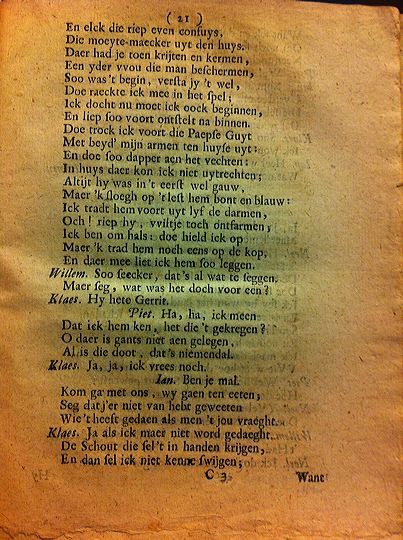 ( 21 )
En elck die riep even confuys,
Die moeyte-maecker uyt den huys.
Daer had je toen krijten en kermen,
Een yder vvou die man beschermen,
Soo was't begin, versta jy 't wel,
Doe raeckte ick mee in het spel;
Ick docht nu moet ick oock beginnen,
En liep soo voort ontstelt na binnen.
Doe trock ick voort die Paepse Guyt
Met beyd' mijn armen ten huyse uyt:
En doe soo dapper aen het vechten:
In huys daer kon ick niet uytrechten;
Altijt hy was in't eerst wel gauw,
Maer 'k sloegh op 't lest hem bont en blauw:
Ick tradt hem voort uyt lyf de darmen,
Och! riep hy, vviltje toch ontfarmen;
Ick ben om hals: doe hield ick op
Maer 'k trad hem noch eens op de kop,
En daer mee liet ick hem soo leggen.
Willem. Soo seecker, dat's al wat te seggen.
Maer seg, wat was het doch voor een?
Klaes. Hy hete Gerrit.
Piet. Ha, ha, ick meen
Dat ick hem ken, het die 't gekregen?
O daer is gants niet aen gelegen,
Al is die doot, dat's niemendal.
Klaes. Ja, ja, ick vrees noch.
Jan. Ben je mal.
Kom ga met ons, wy gaen ten eeten;
Seg dat j'er niet van hebt geweeten
Wie 't heeft gedaen als men 't jou vraeght.
Klaes. Ja als ick maer niet word gedaeght.
De Schout die sel't in handen krijgen,
En dan sel ick niet kenne swijgen;
C 3 Want